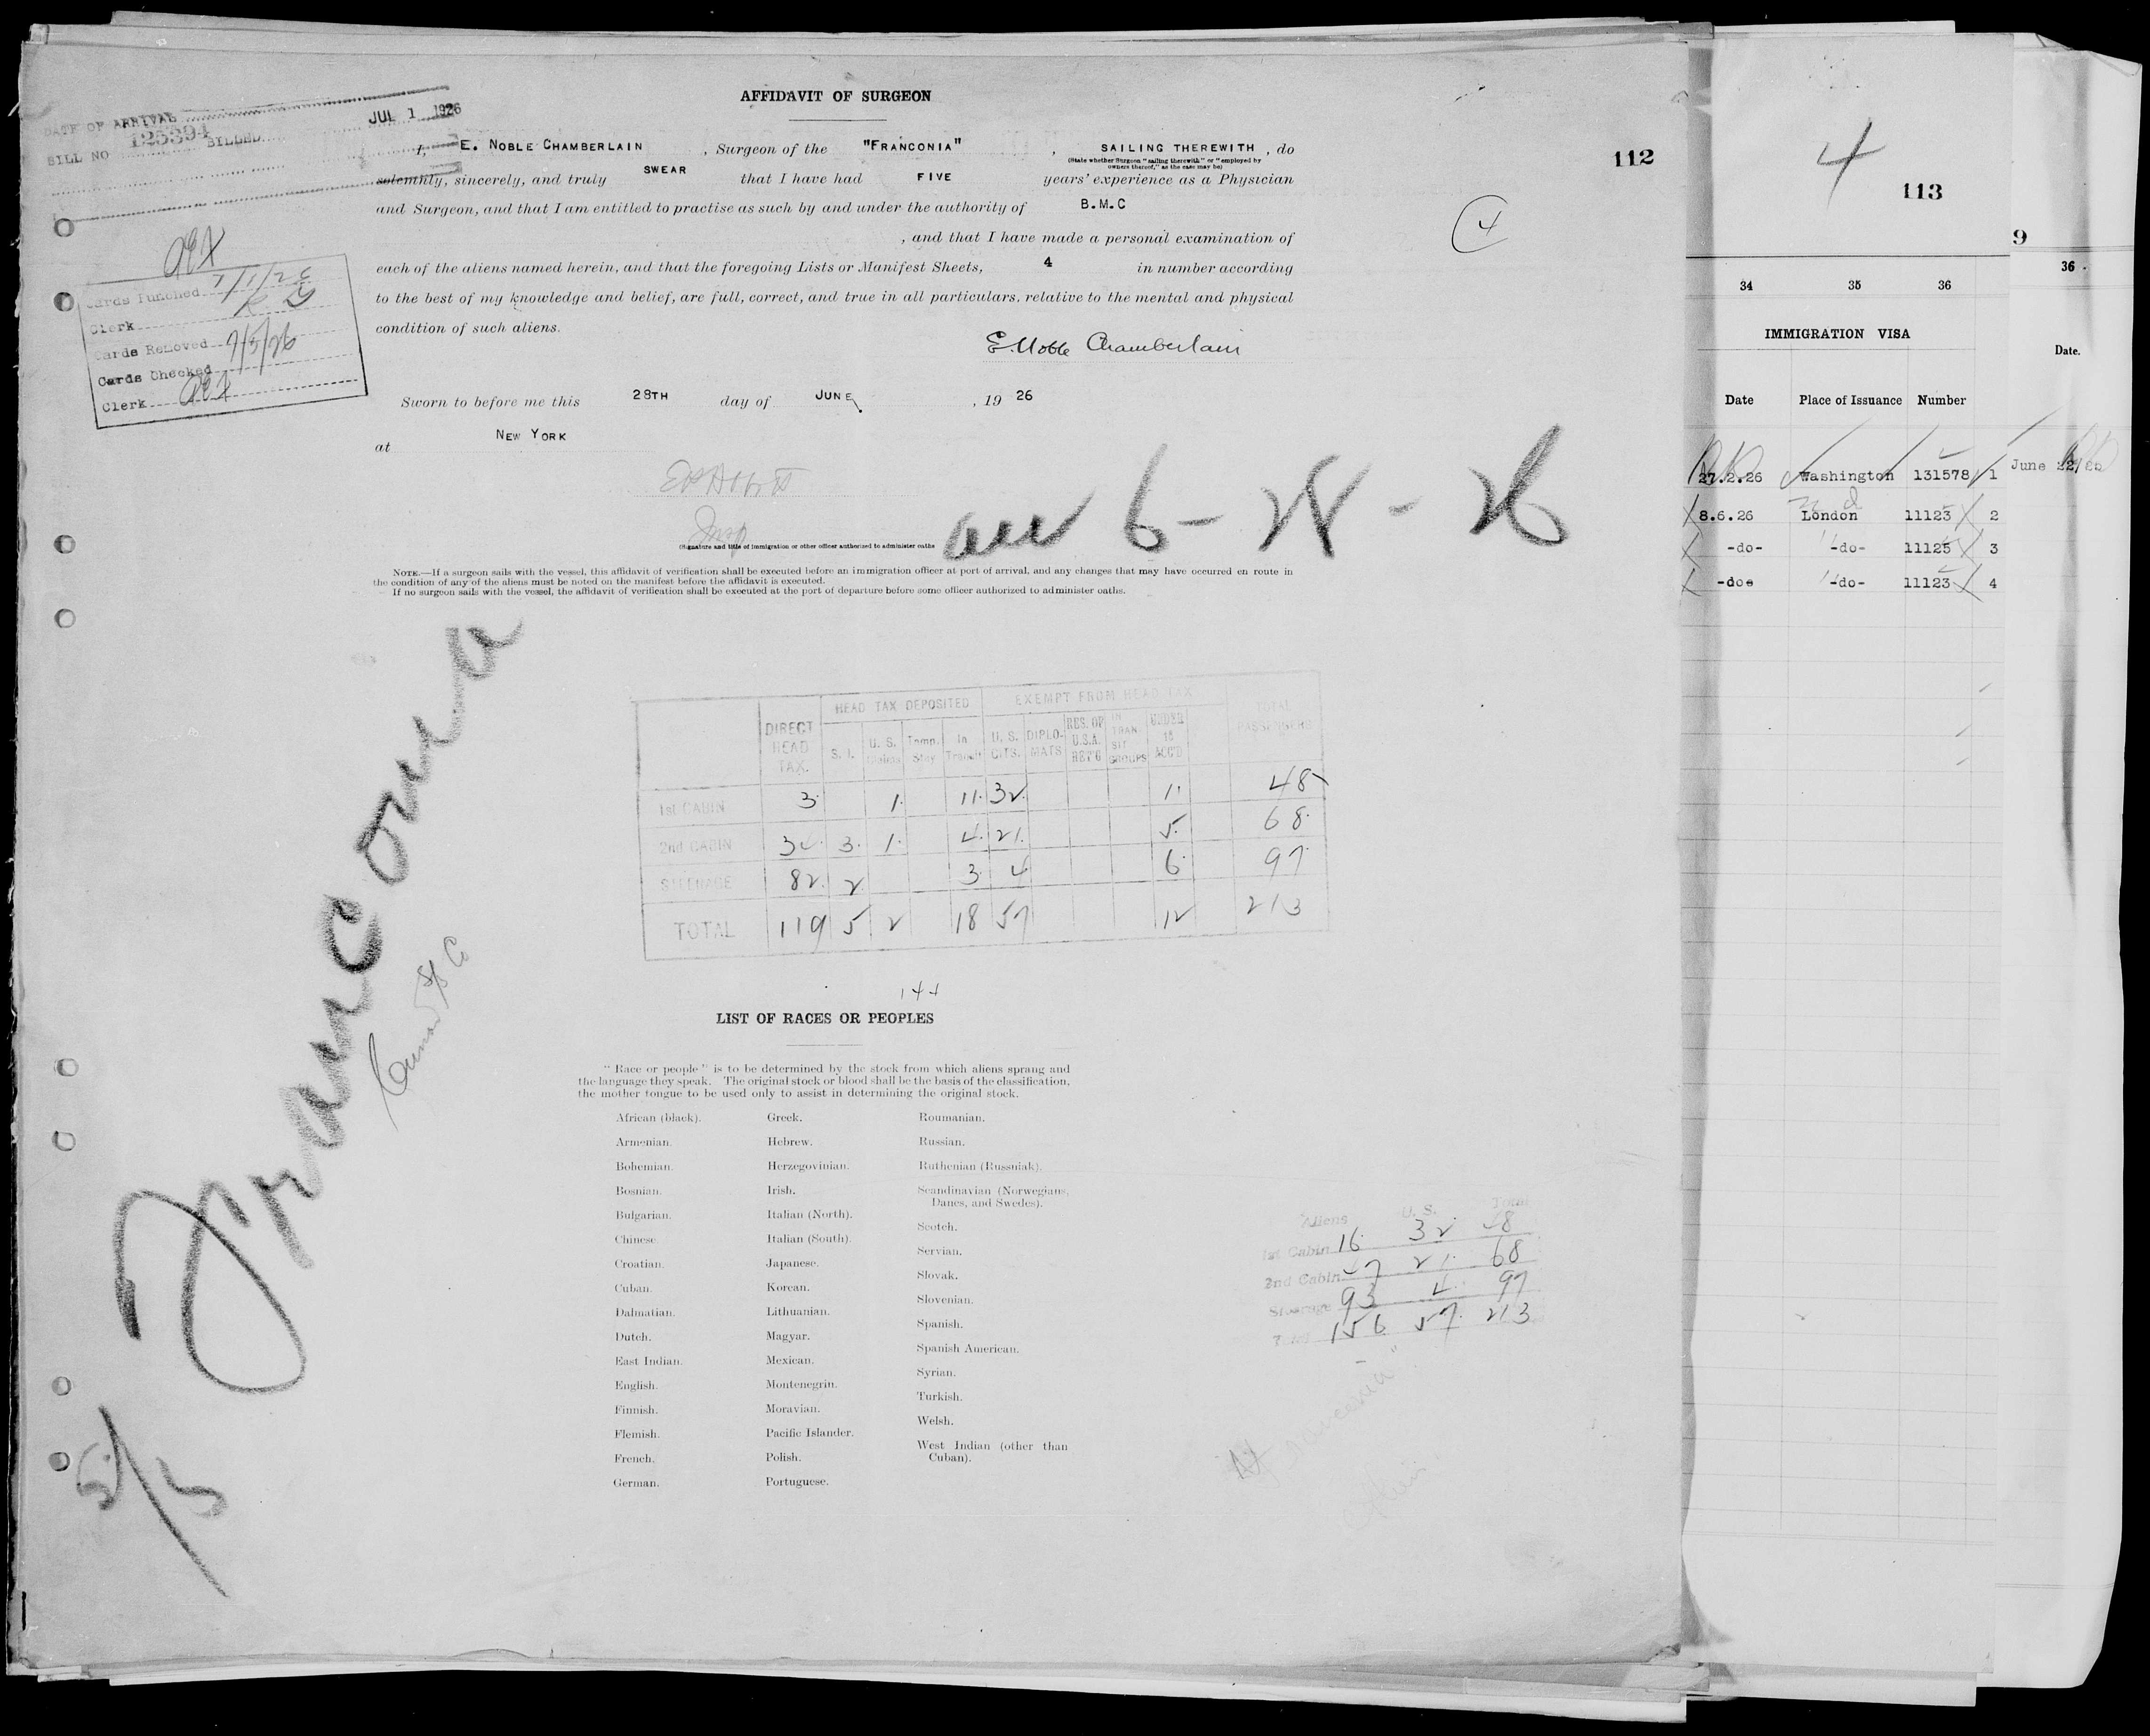 AFFIDAVIT OF SURGEON
DATE OF ARRIVAL JUL 1 1926
BILL NO 125394 BILLED
I, E. NOBLE CHAMBERLAIN, Surgeon of the "FRANCONIA", SAILING THEREWITH, do
(State whether Surgeon "sailing therewith" or "employed by
owners thereof," as the case may be)
solemnly, sincerely, and truly SWEAR that I have had FIVE years' experience as a Physician
and Surgeon, and that I am entitled to practise as such by and under the authority of B.M.C
, and that I have made a personal examination of
each of the aliens named herein, and that the foregoing Lists or Manifest Sheets, 4 in number according
to the best of my knowledge and belief, are full, correct, and true in all particulars, relative to the mental and physical
condition of such aliens.
E. Noble Chamberlain
Sworn to before me this 28TH day of JUNE, 19 26
at NEW YORK
Insp
(Signature and title of immigration or other officer authorized to administer oaths
6-28-26
112
4
Cards Punched 7/1/26
Clerk
Cards Removed 7/5/26
Cards Checked
Clerk
NOTE.—If a surgeon sails with the vessel, this affidavit of verification shall be executed before an immigration officer at port of arrival, and any changes that may have occurred en route in
the condition of any of the aliens must be noted on the manifest before the affidavit is executed.
If no surgeon sails with the vessel, the affidavit of verification shall be executed at the port of departure before some officer authorized to administer oaths.
Franconia
Cunard SS Co
HEAD TAX DEPOSITED EXEMPT FROM HEAD TAX
DIRECT HEAD TAX. S. I. U. S. Temp. Stay In Transit U. S. CITS. DIPLO-MATS RES. OF U.S.A. RET'G IN TRAN SIT GROUPS UNDER 16 ACC'D TOTAL PASSENGERS
1st CABIN 3 1 11 32 1 48
2nd CABIN 34 3 1 4 21 5 68
STEERAGE 82 2 3 4 6 97
TOTAL 119 5 2 18 57 12 213
144
LIST OF RACES OR PEOPLES
"Race or people" is to be determined by the stock from which aliens sprang and
the language they speak. The original stock or blood shall be the basis of the classification,
the mother tongue to be used only to assist in determining the original stock.
African (black).
Armenian.
Bohemian.
Bosnian.
Bulgarian.
Chinese
Croatian.
Cuban.
Dalmatian.
Dutch.
East Indian.
English.
Finnish.
Flemish.
French.
German.
Greek.
Hebrew.
Herzegovinian.
Irish.
Italian (North).
Italian (South).
Japanese.
Korean.
Lithuanian.
Magyar.
Mexican.
Montenegrin.
Moravian.
Pacific Islander.
Polish.
Portuguese.
Roumanian.
Russian.
Ruthenian (Russniak).
Scandinavian (Norwegians,
Danes, and Swedes).
Scotch.
Servian.
Slovak.
Slovenian.
Spanish.
Spanish American.
Syrian.
Turkish.
Welsh.
West Indian (other than
Cuban).
Aliens U. S. Total
1st Cabin 16 32 48
2nd Cabin 47 21 68
Steerage 93 4 97
Total 156 57 213
Franconia"
4
113
34 35 36
IMMIGRATION VISA
Date Place of Issuance Number
27.2.26 Washington 131578 1
8.6.26 London 11123 2
-do- -do- 11125 3
-doe -do- 11123 4
9
36.
Date.
June 22/26